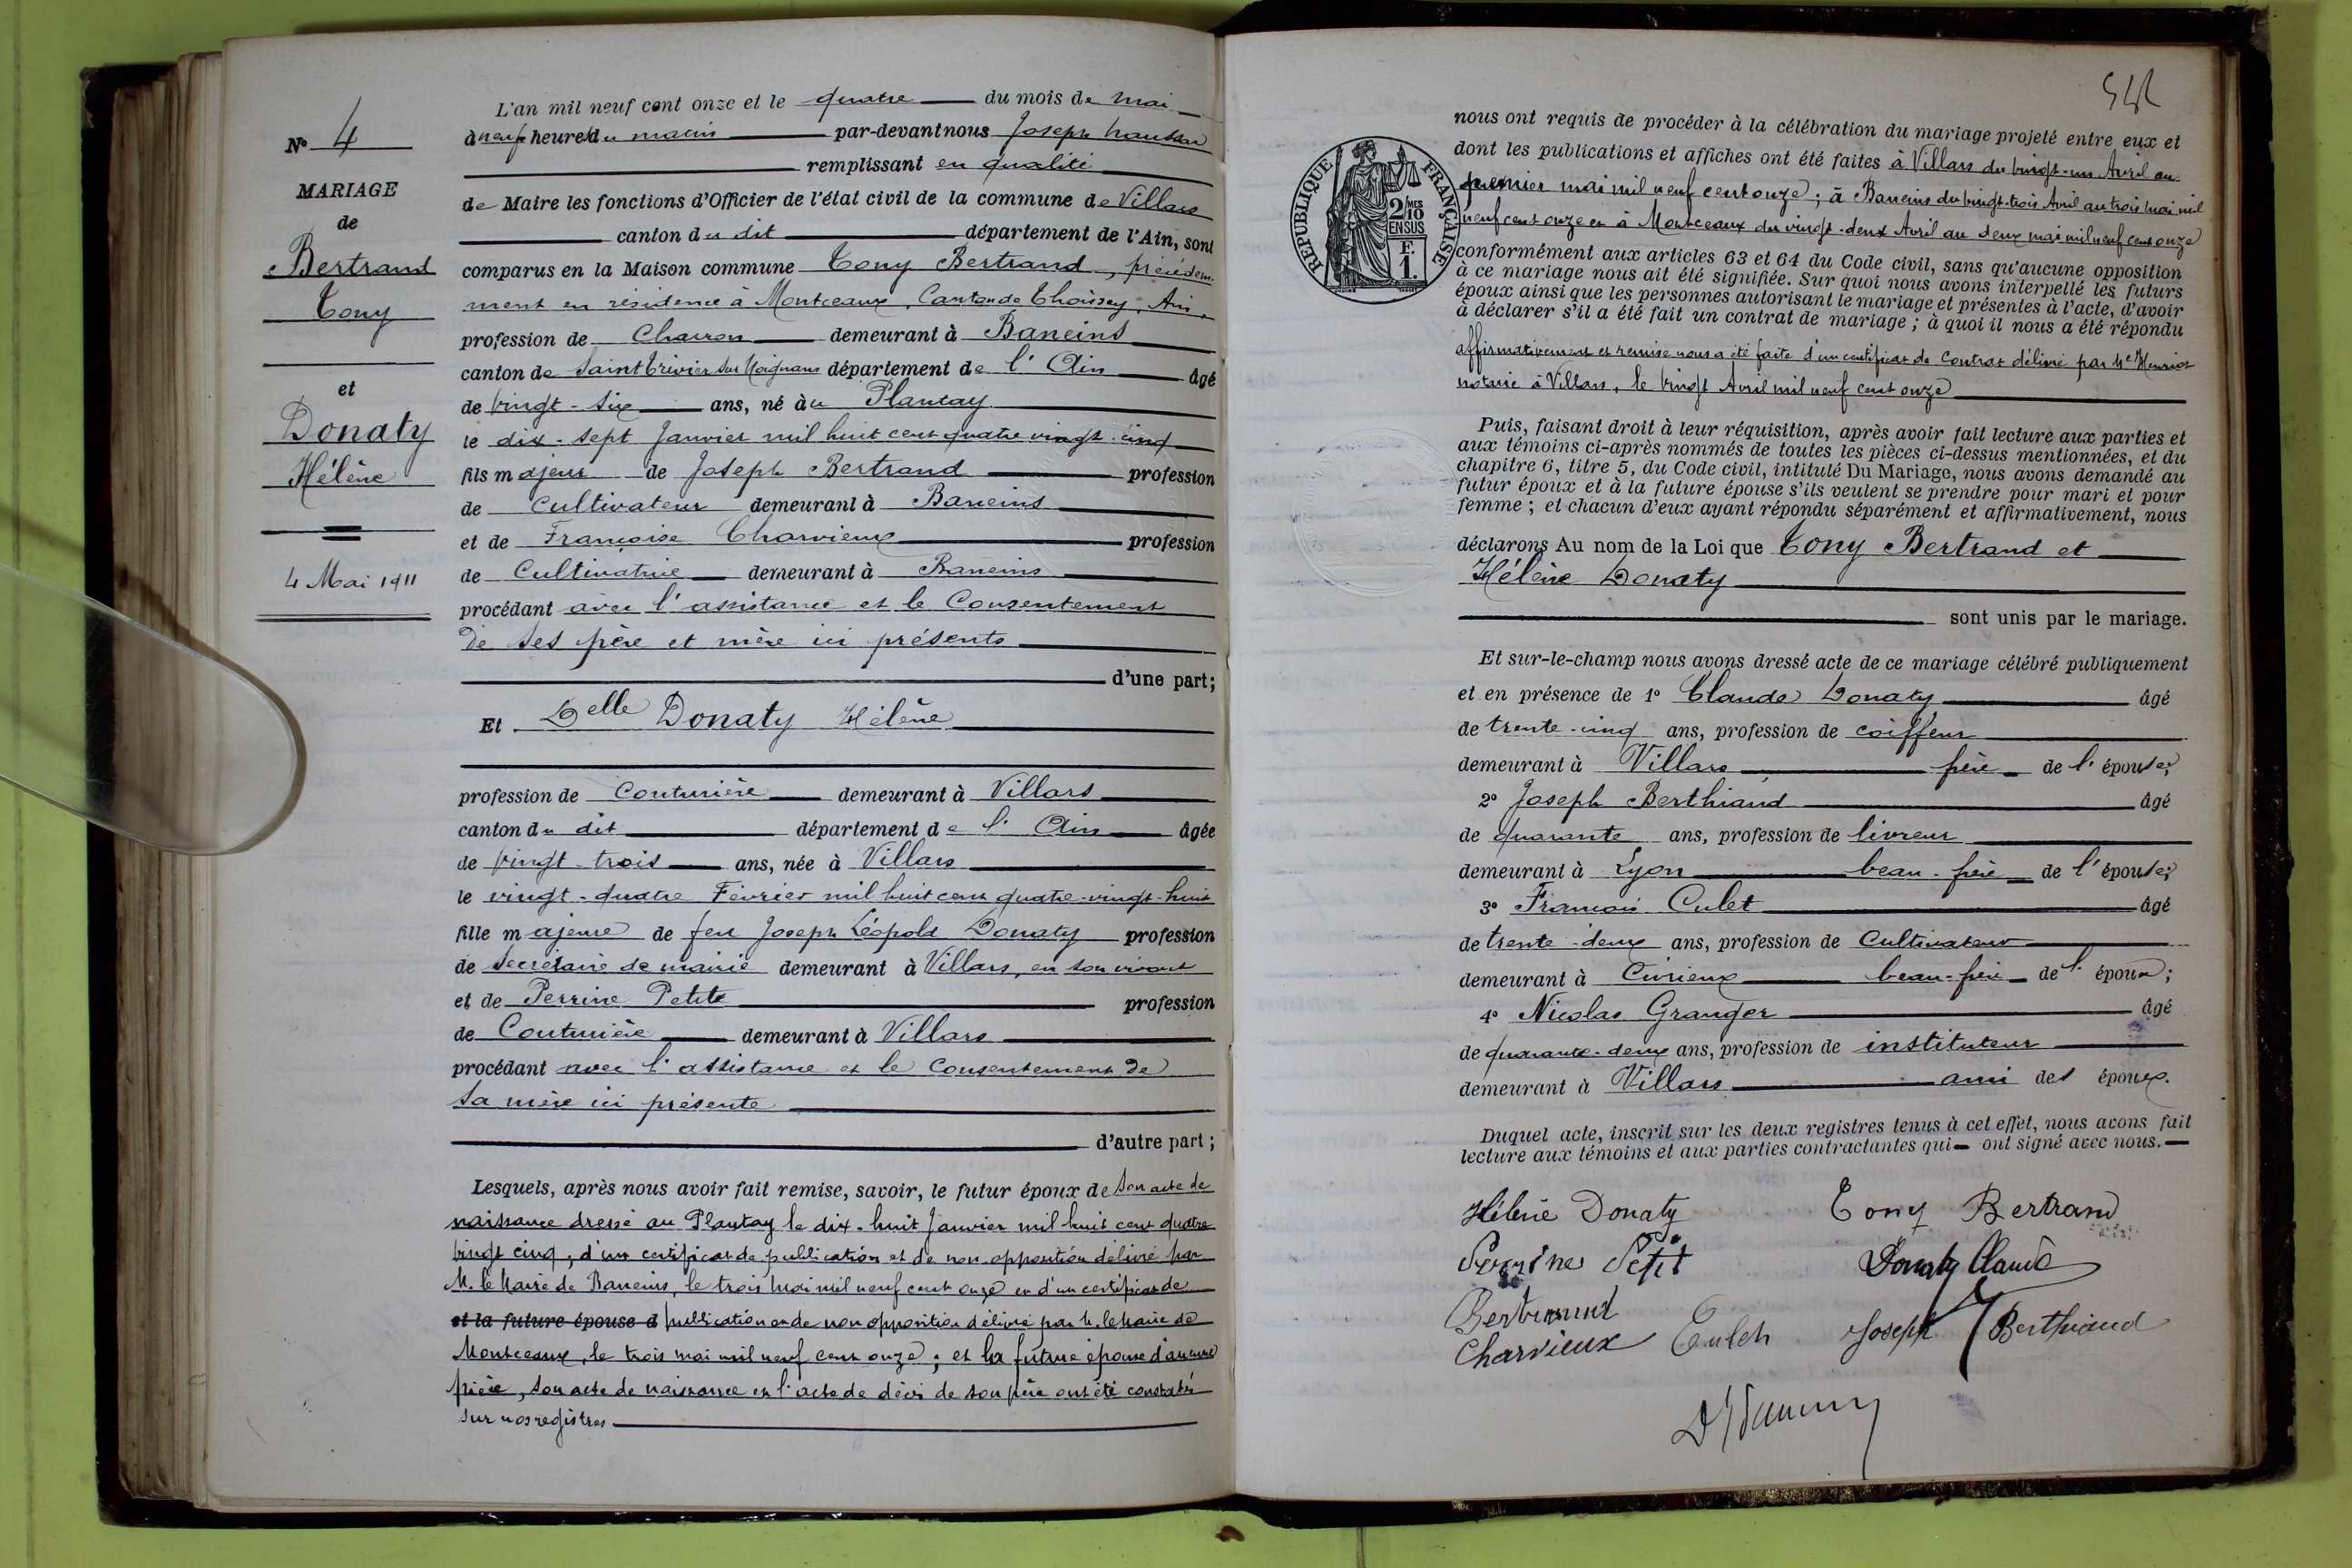 N° 4
MARIAGE
de
Bertrand
Tony
et
Donaty
Hélène
4 Mai 1911
L'an mil neuf cent onze et le quatre du mois de mai
à neuf heures du matin par-devant nous Joseph
remplissant en qualité
de Maire les fonctions d'Officier de l'état civil de la commune de Villars
canton du dit département de l'Ain, sont
comparus en la Maison commune Tony Bertrand, précédem-
ment en résidence à Montceaux, Canton de Thoissey, Ain,
profession de Charron demeurant à Baneins
canton de Saint Trivier sur Moignans département de l'Ain âgé
de vingt-six ans, né au Plantay
le dix-sept Janvier mil huit cent quatre vingt-cinq
fils majeur de Joseph Bertrand profession
de Cultivateur demeurant à Baneins
et de Françoise Charvieux profession
de Cultivatrice demeurant à Baneins
procédant avec l'assistance et le Consentement
de ses père et mère ici présents
d'une part;
Et Delle Donaty Hélène
profession de Couturière demeurant à Villars
canton du dit département de l'Ain âgée
de vingt-trois ans, née à Villars
le vingt-quatre Février mil huit cent quatre-vingt-huit
fille majeure de feu Joseph Léopold Donaty profession
de Secrétaire de mairie demeurant à Villars, en son vivant
et de Perrine Petit profession
de Couturière demeurant à Villars
procédant avec l'assistance et le Consentement de
sa mère ici présente
d'autre part;
Lesquels, après nous avoir fait remise, savoir, le futur époux de son acte de
naissance dressé au Plantay le dix-huit Janvier mil huit cent quatre
vingt cinq, d'un certificat de publication et de non-opposition délivré par
M. le Maire de Baneins, le trois Mai mil neuf cent onze et d'un certificat de
et la future épouse d publication et de non opposition délivré par M. le Maire de
Montceaux, le trois mai mil neuf cent onze; et la future épouse d'aucune
pièce, son acte de naissance et l'acte de décès de son père ont été constatés
sur nos registres
RÉPUBLIQUE FRANÇAISE
2/10 MES
EN SUS
F.
1.
nous ont requis de procéder à la célébration du mariage projeté entre eux et
dont les publications et affiches ont été faites à Villars du vingt-un Avril au
premier mai mil neuf cent onze; à Baneins du vingt-trois Avril au trois Mai mil
neuf cent onze et à Montceaux du vingt-deux Avril au deux mai mil neuf cent onze
conformément aux articles 63 et 64 du Code civil, sans qu'aucune opposition
à ce mariage nous ait été signifiée. Sur quoi nous avons interpellé les futurs
époux ainsi que les personnes autorisant le mariage et présentes à l'acte, d'avoir
à déclarer s'il a été fait un contrat de mariage; à quoi il nous a été répondu
affirmativement et remise nous a été faite d'un certificat de Contrat délivré par Me Henriot
notaire à Villars, le vingt Avril mil neuf cent onze
Puis, faisant droit à leur réquisition, après avoir fait lecture aux parties et
aux témoins ci-après nommés de toutes les pièces ci-dessus mentionnées, et du
chapitre 6, titre 5, du Code civil, intitulé Du Mariage, nous avons demandé au
futur époux et à la future épouse s'ils veulent se prendre pour mari et pour
femme; et chacun d'eux ayant répondu séparément et affirmativement, nous
déclarons Au nom de la Loi que Tony Bertrand et
Hélène Donaty
sont unis par le mariage.
Et sur-le-champ nous avons dressé acte de ce mariage célébré publiquement
et en présence de 1° Claude Donaty âgé
de trente-cinq ans, profession de coiffeur
demeurant à Villars frère de l'épouse;
2° Joseph Berthiand âgé
de quarante ans, profession de livreur
demeurant à Lyon beau-frère de l'épouse;
3° François Culet âgé
de trente-deux ans, profession de Cultivateur
demeurant à Civrieux beau-frère de l'époux;
4° Nicolas Granger âgé
de quarante-deux ans, profession de instituteur
demeurant à Villars ami des époux.
Duquel acte, inscrit sur les deux registres tenus à cet effet, nous avons fait
lecture aux témoins et aux parties contractantes qui ont signé avec nous.
Hélène Donaty Tony Bertrand
Perrine Petit Donaty Claude
Bertrand
Charvieux Joseph Berthiand